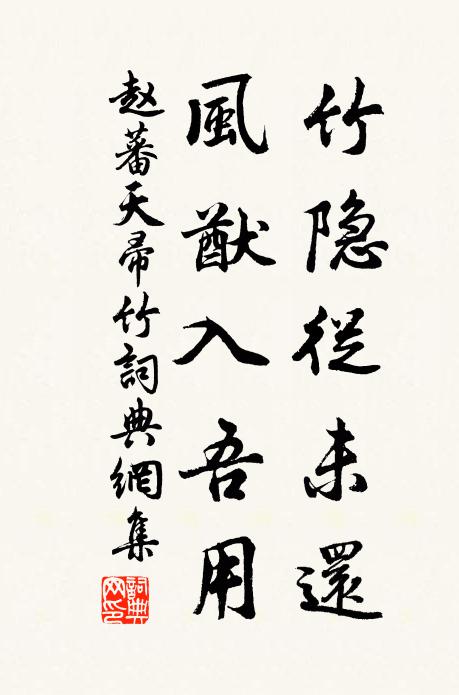 竹隐從未還
風猷入吾用
赵蕃天帚竹詞典網集
詞典網印